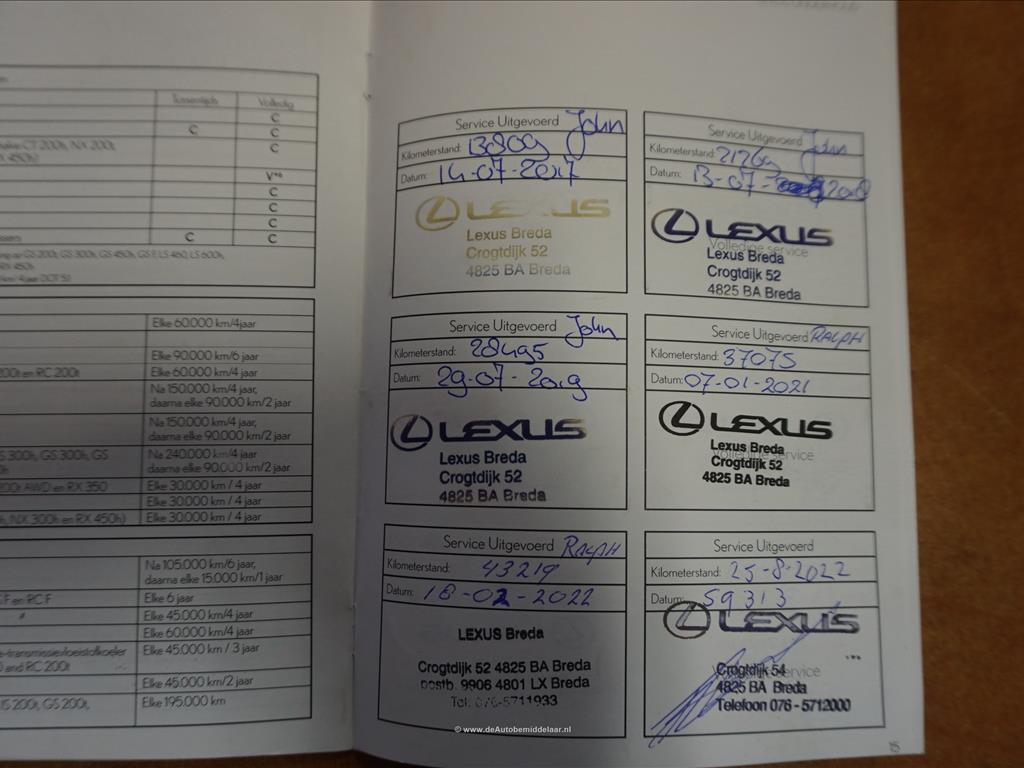 Tussentijds Volledig
C
C C
make: CT 200h, NX 200t, C
450h)
V
C
C
C
C C
GS 200t, GS 300h, GS 450h, GS F, LS 460, LS 600h,
RX 450h
DOT 5.1
Elke 60.000 km/4jaar
Elke 90.000 km/6 jaar
200t en RC 200t Elke 60.000 km/4 jaar
Na 150.000 km/4 jaar,
daarna elke 90.000 km/2 jaar
Na 150.000 km/4 jaar,
daarna elke 90.000 km/2 jaar
S 300h, GS 300h, GS Na 240.000 km/4 jaar
daarna elke 90.000 km/2 jaar
200t AWD en RX 350 Elke 30.000 km / 4 jaar
Elke 30.000 km / 4 jaar
h, NX 300h en RX 450h) Elke 30.000 km / 4 jaar
Na 105.000 km/6 jaar,
daarna elke 15.000 km/1 jaar
F en RC F Elke 6 jaar
Elke 45.000 km/4 jaar
Elke 60.000 km/4 jaar
e-transmissievloeistofkoeler Elke 45.000 km / 3 jaar
and RC 200t
Elke 45.000 km/2 jaar
IS 200t, GS 200t, Elke 195.000 km
Service Uitgevoerd John
Kilometerstand: 13809
Datum: 14-07-2017
LEXUS
Lexus Breda
Crogtdijk 52
4825 BA Breda
Service Uitgevoerd John
Kilometerstand: 21269
Datum: 13-07- 2018
LEXUS
Volledige service
Lexus Breda
Crogtdijk 52
4825 BA Breda
Service Uitgevoerd John
Kilometerstand: 28495
Datum: 29-07-2019
LEXUS
Lexus Breda
Crogtdijk 52
4825 BA Breda
Service Uitgevoerd RALPH
Kilometerstand: 37075
Datum: 07-01-2021
LEXUS
Lexus Breda
Volledige service
Crogtdijk 52
4825 BA Breda
Service Uitgevoerd RALPH
Kilometerstand: 43219
Datum: 18-02-2022
LEXUS Breda
Crogtdijk 52 4825 BA Breda
postb. 9906 4801 LX Breda
Tel: 076-5711933
Service Uitgevoerd
Kilometerstand: 25-8-2022
Datum: 59313
LEXUS
Crogtdijk 54
service
4825 BA Breda
Telefoon 076 - 5712000
15
© www.deAutobemiddelaar.nl